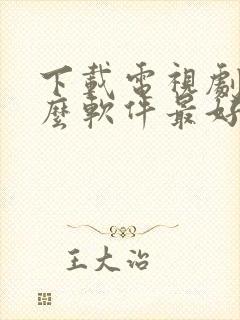 下載電視劇
麼軟件最好
王大治